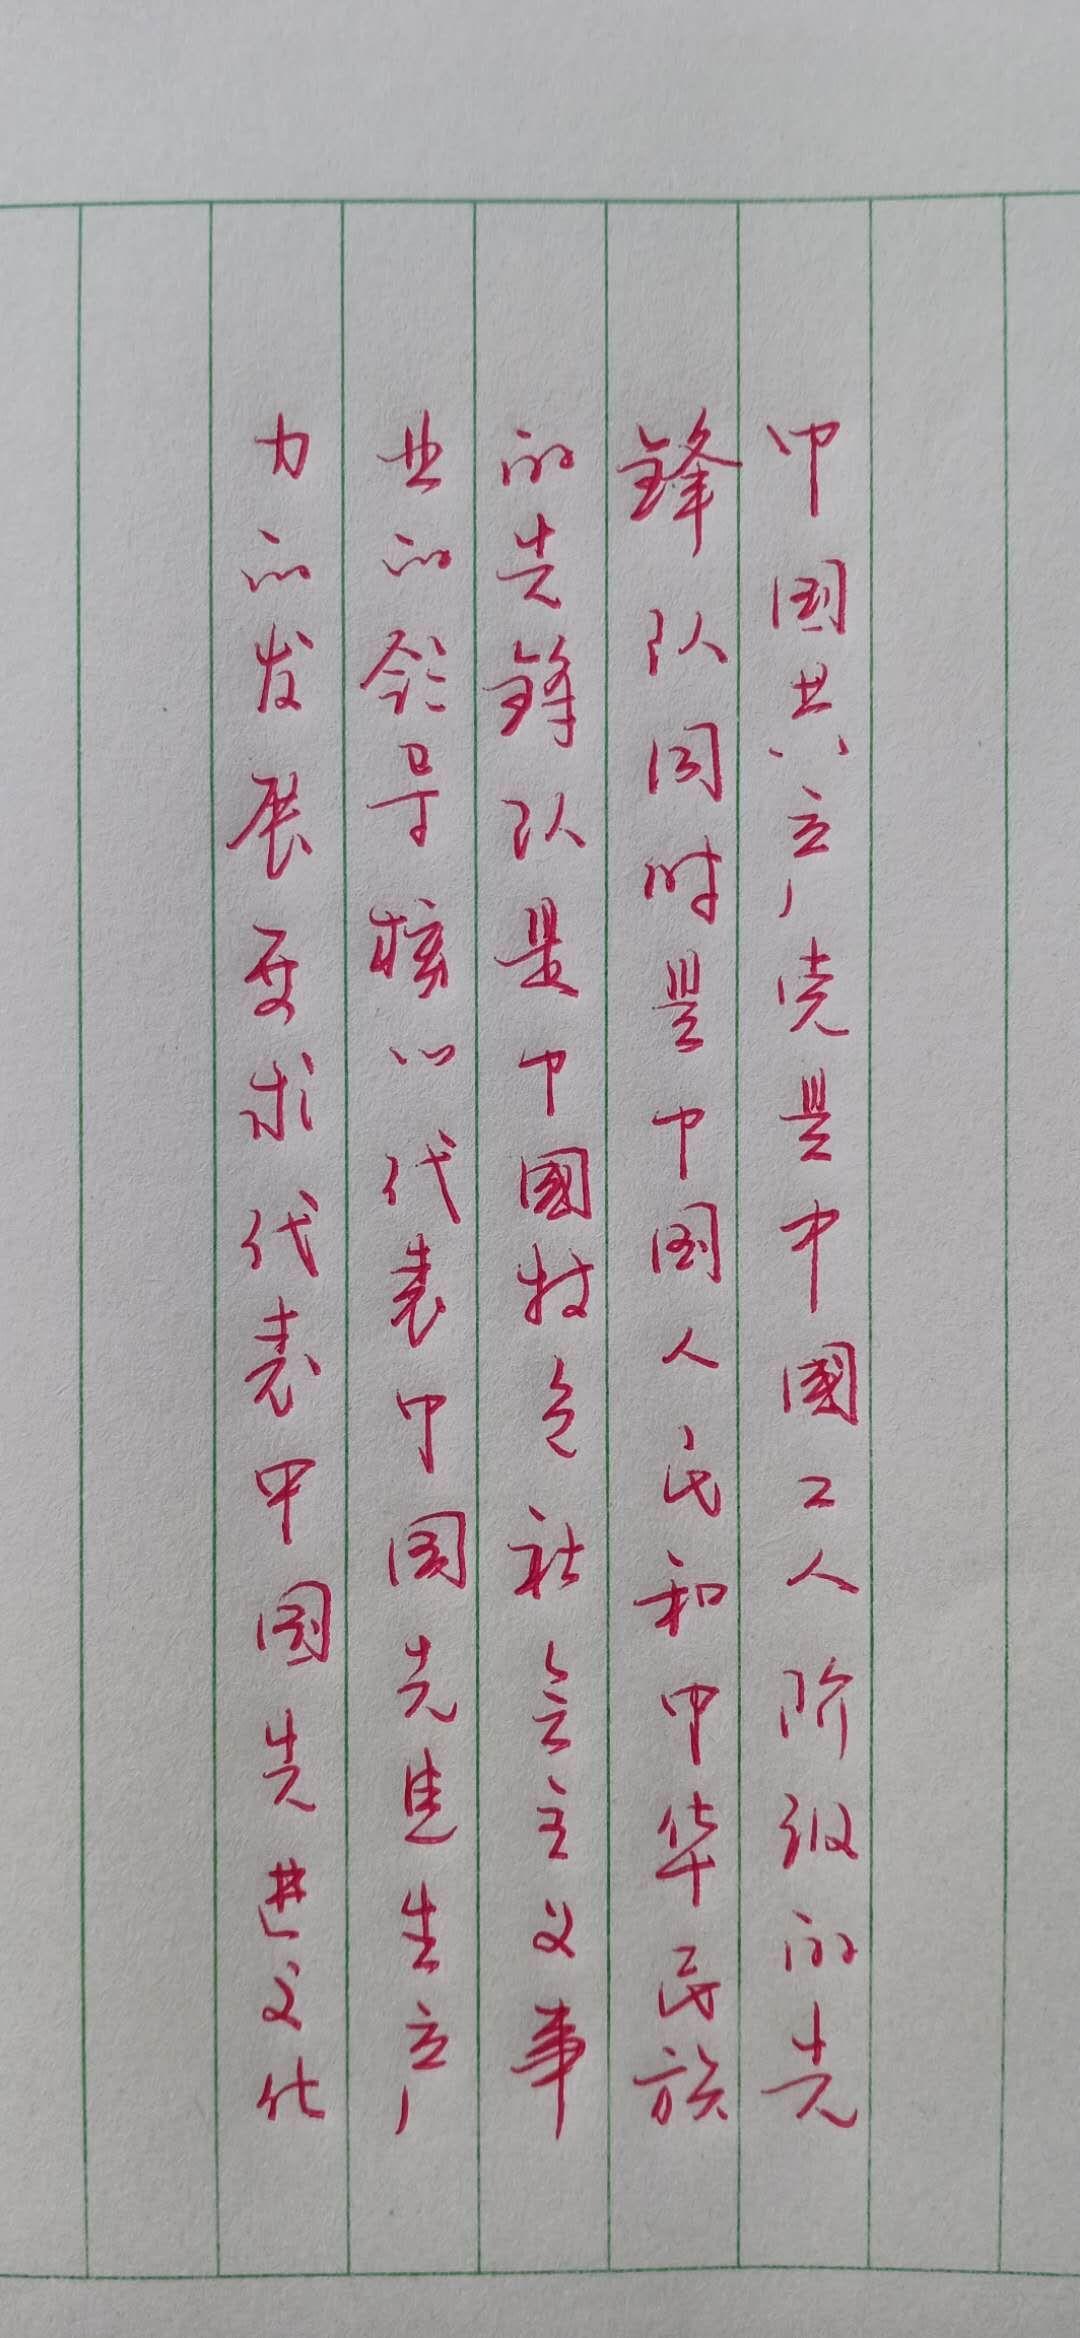 中国共产党是中國工人阶级的先
鋒队同时是中国人民和中华民族
的先鋒队是中國特色社会主义事
业的领导核心代表中国先进生产
力的发展要求代表中国先进文化